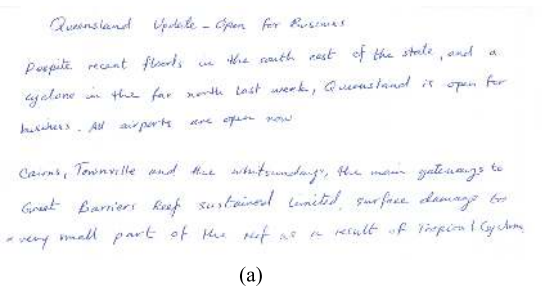 Queensland Update - Open for Business
Despite recent floods in the south east of the state, and a
cyclone in the far north last week, Queensland is open for
business. All airports are open now
Cairns, Townville and the whitsundays, the main gateways to
Great Barriers Reef sustained limited, surface damage to
a very small part of the reef as a result of Tropical Cyclone
(a)